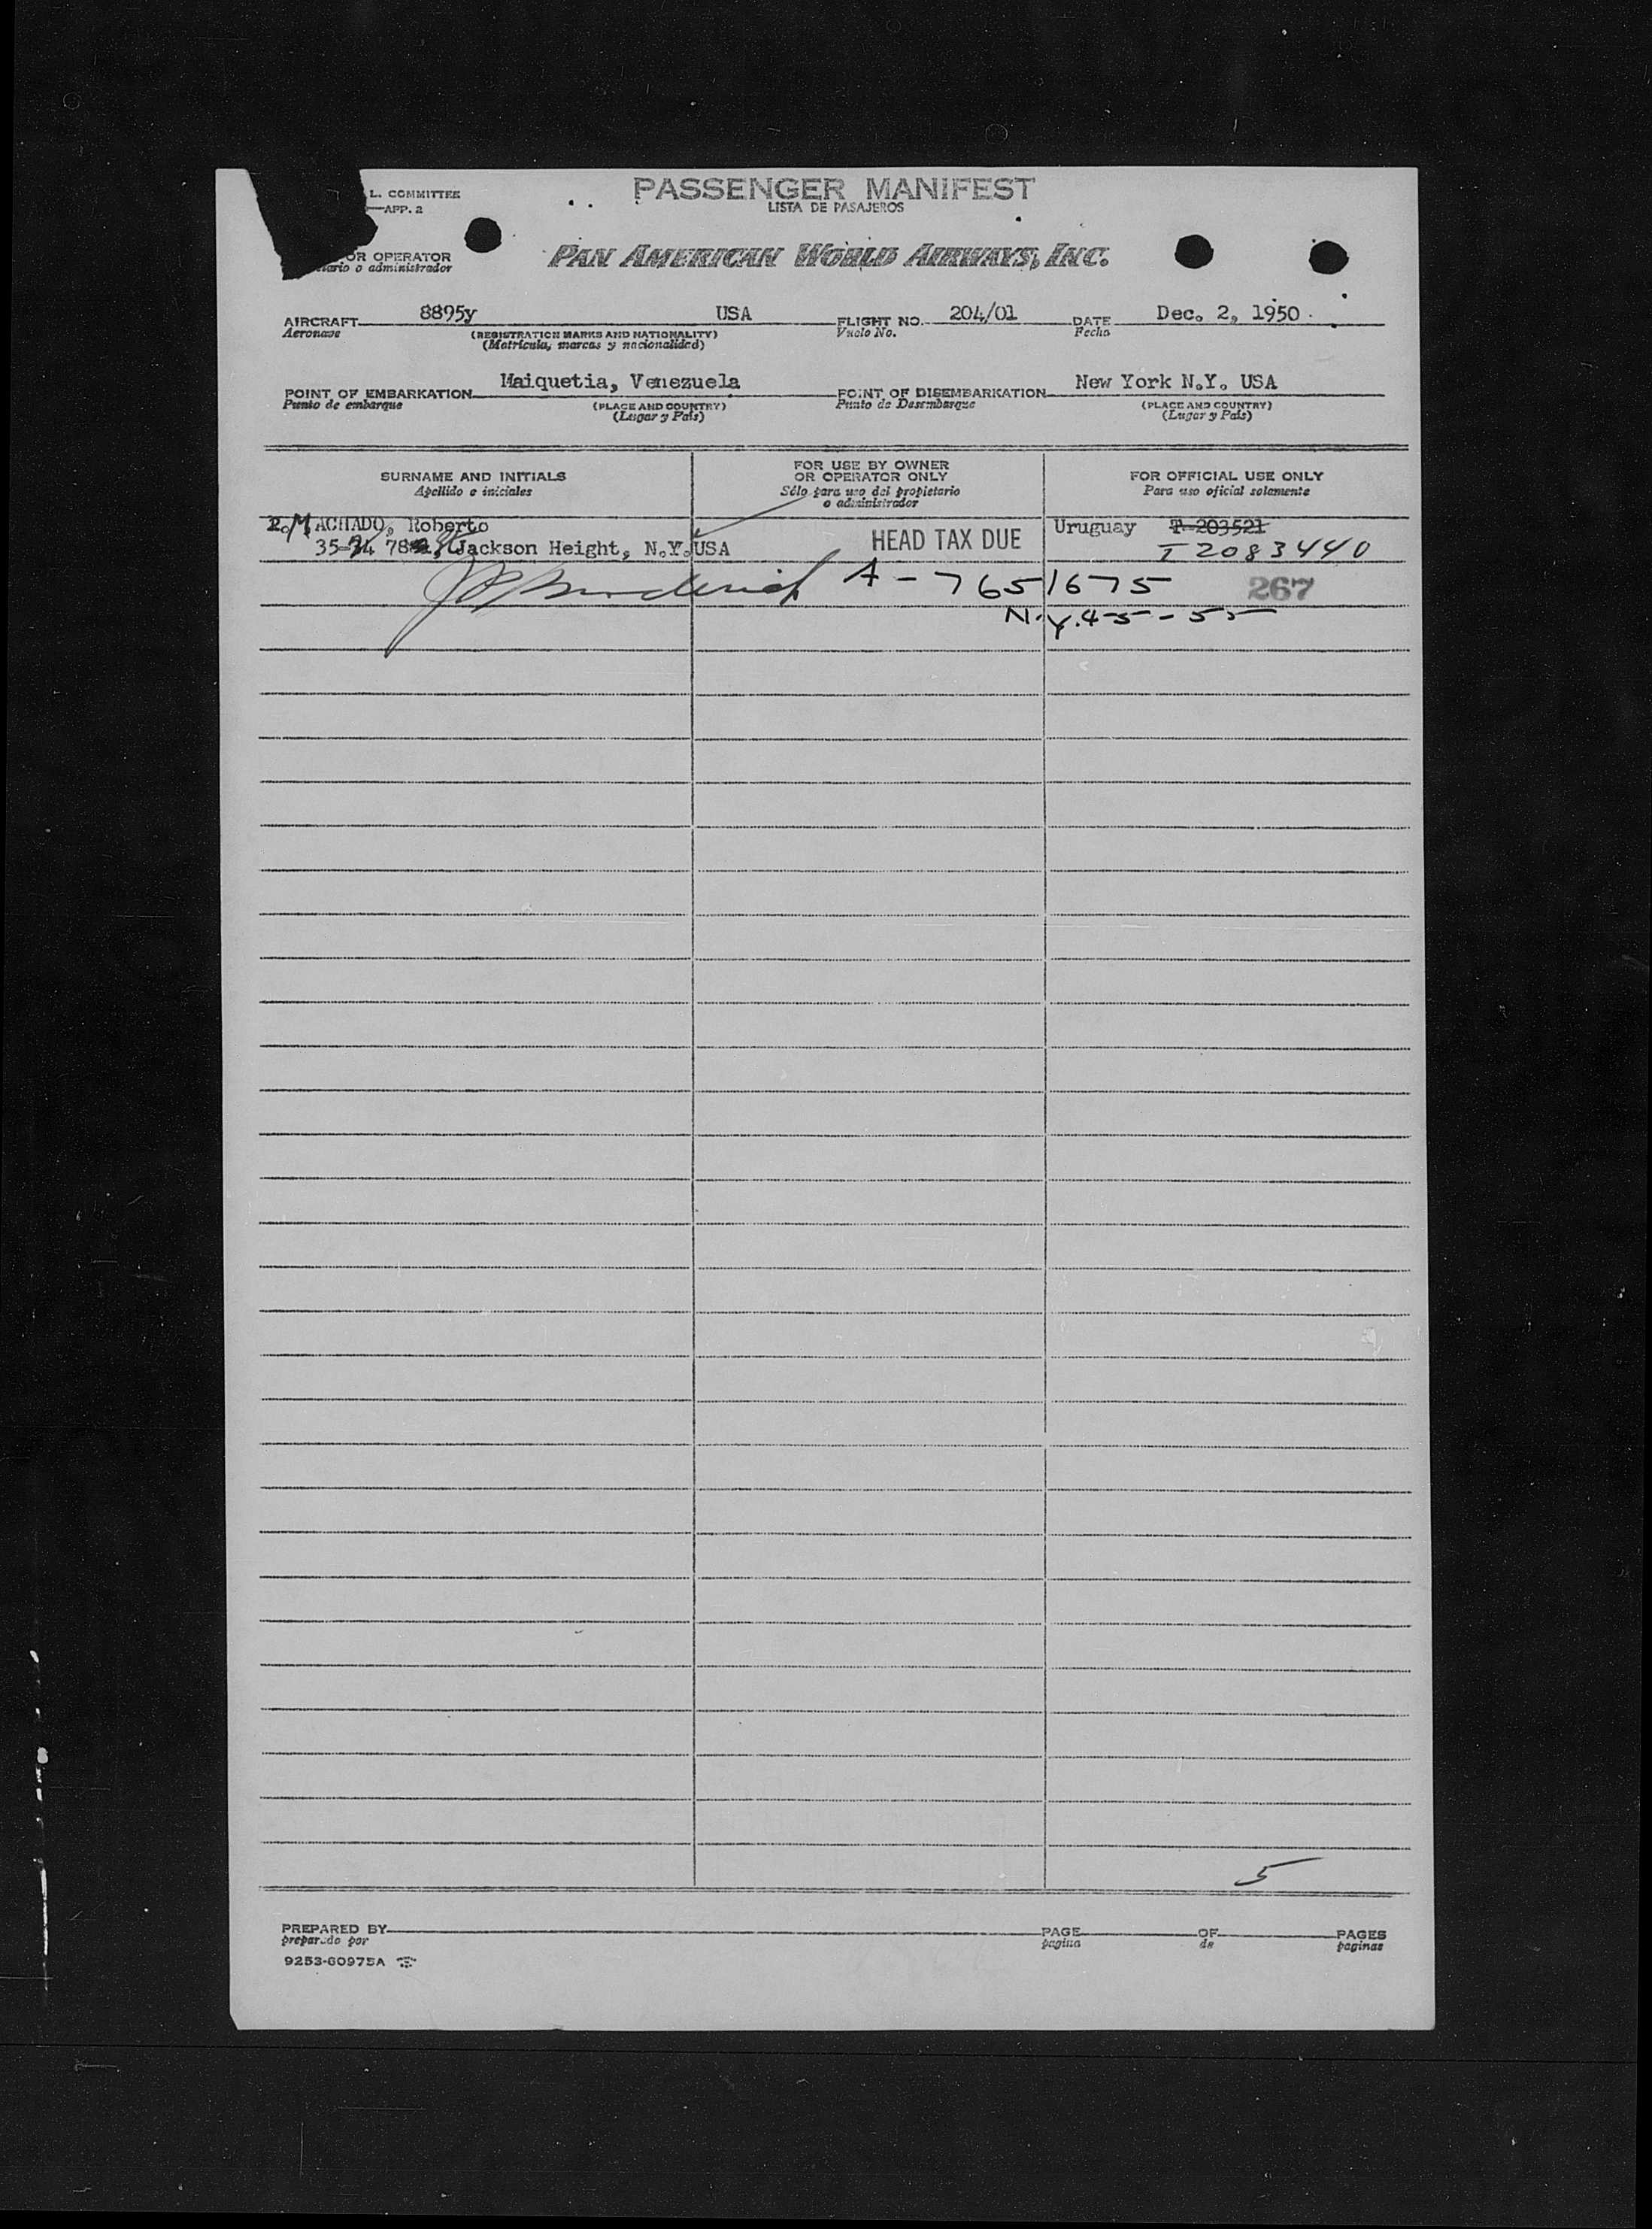 L. COMMITTEE
APP. 2
PASSENGER MANIFEST
LISTA DE PASAJEROS
OR OPERATOR
o administrador
PAN AMERICAN WORLD AIRWAYS, INC.
AIRCRAFT 8895y USA FLIGHT NO. 204/01 DATE Dec. 2, 1950
Aeronave (REGISTRATION MARKS AND NATIONALITY) Vuelo No. Fecha
(Matrícula, marcas y nacionalidad)
POINT OF EMBARKATION Maiquetia, Venezuela POINT OF DISEMBARKATION New York N.Y. USA
Punto de embarque (PLACE AND COUNTRY) Punto de Desembarque (PLACE AND COUNTRY)
(Lugar y País) (Lugar y País)
SURNAME AND INITIALS FOR USE BY OWNER OR OPERATOR ONLY FOR OFFICIAL USE ONLY
Apellido e iniciales Sólo para uso del propietario o administrador Para uso oficial solamente
MACHADO, Roberto Uruguay T-203521
Jackson Height, N.Y. USA HEAD TAX DUE I 2083440
A-7651675 267
N.Y. 45-55
5
PREPARED BY PAGE OF PAGES
preparado por pagina de paginas
9253-60975A